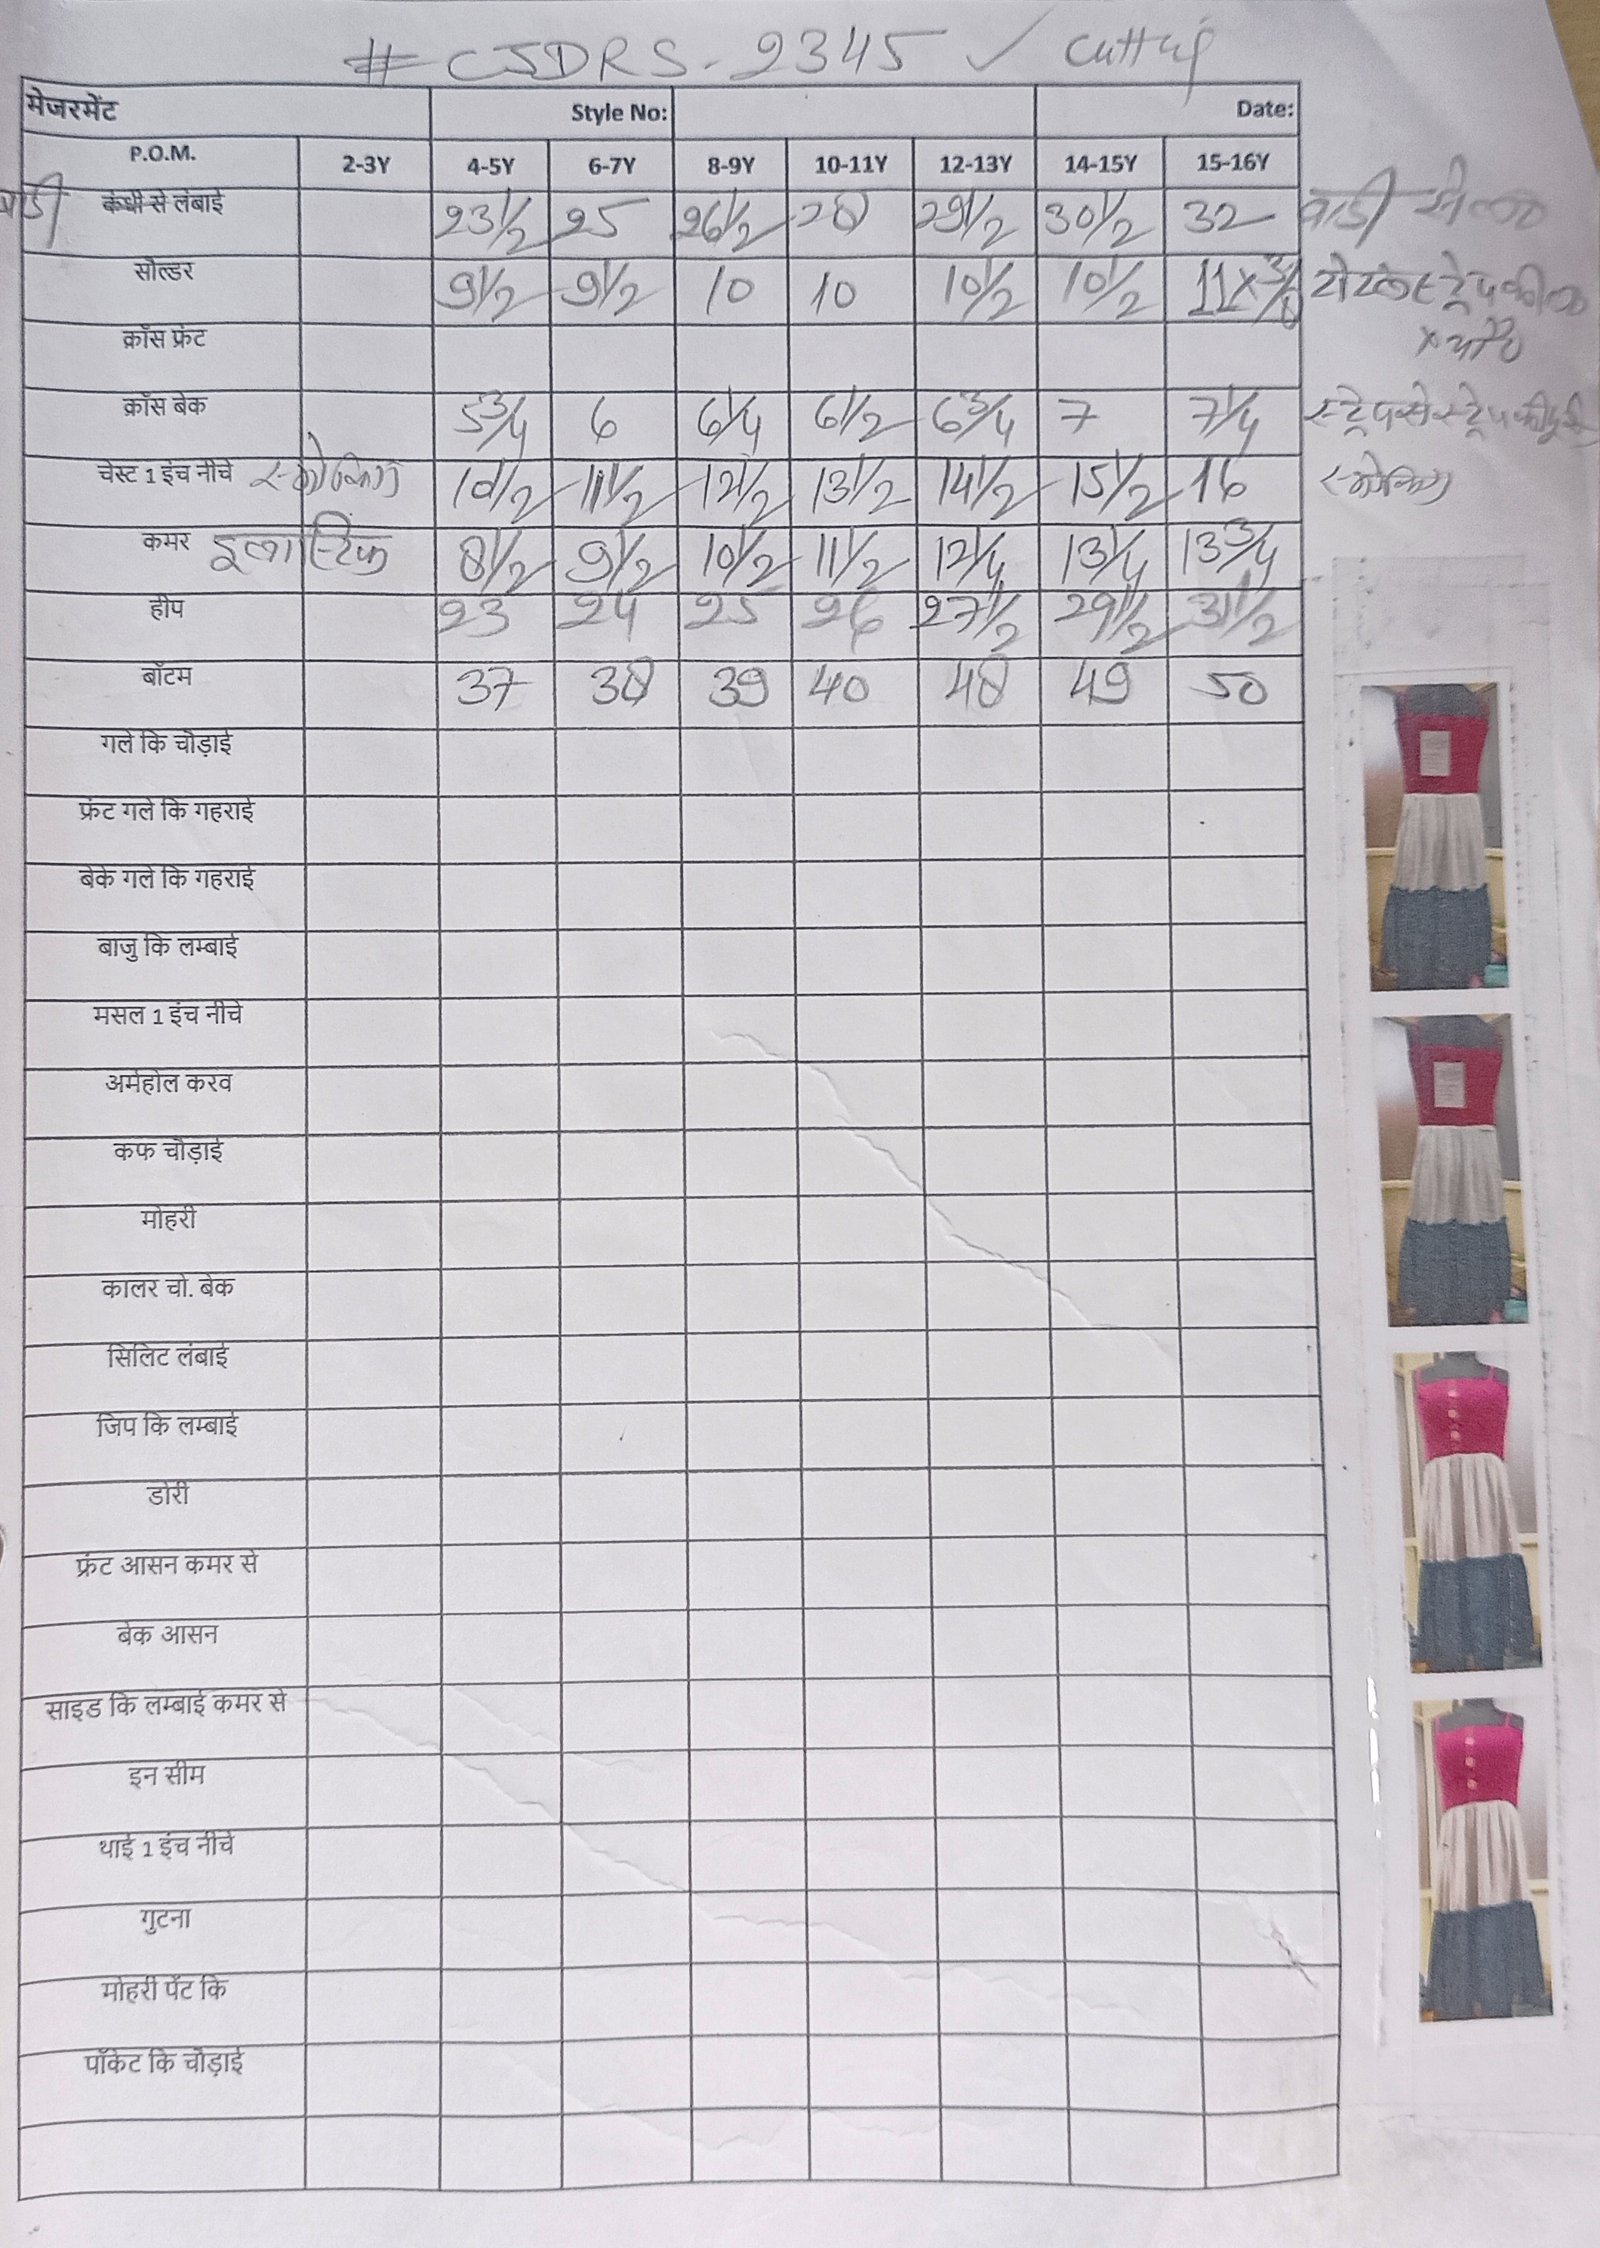 # CJDRS-2345 ✓ Cutting
मेजरमेंट Style No: Date:
P.O.M. 2-3Y 4-5Y 6-7Y 8-9Y 10-11Y 12-13Y 14-15Y 15-16Y
बाडी कंधी से लंबाई 23 1/2 25 26 1/2 28 29 1/2 30 1/2 32 बाडी से ल०
सोल्डर 9 1/2 9 1/2 10 10 10 1/2 10 1/2 11 x 3/8 टोटल स्ट्रेप की ल०
x चौ०
क्रॉस फ्रंट
क्रॉस बेक 5 3/4 6 6 1/4 6 1/2 6 3/4 7 7 1/4 स्ट्रेप से स्ट्रेप की दूरी
चेस्ट 1 इंच नीचे स्मोकिंग 10 1/2 11 1/2 12 1/2 13 1/2 14 1/2 15 1/2 16 स्मोकिंग
कमर इलास्टिक 8 1/2 9 1/2 10 1/2 11 1/2 12 1/4 13 1/4 13 3/4
हीप 23 24 25 26 27 1/2 29 1/2 31 1/2
बॉटम 37 38 39 40 48 49 50
गले कि चोड़ाई
फ्रंट गले कि गहराई
बेके गले कि गहराई
बाजु कि लम्बाई
मसल 1 इंच नीचे
अर्महोल करव
कफ चौड़ाई
मोहरी
कालर चो. बेक
सिलिट लंबाई
जिप कि लम्बाई
डोरी
फ्रंट आसन कमर से
बेक आसन
साइड कि लम्बाई कमर से
इन सीम
थाई 1 इंच नीचे
गुटना
मोहरी पेंट कि
पॉकेट कि चौड़ाई